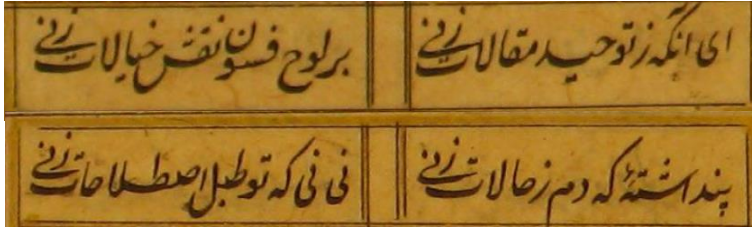 ای آنکه ز توحید مقالات زنی
بر لوح فسون نقش خیالات زنی
پنداشتهٔ که دم ز حالات زنی
نی نی که تو طبل اصطلاحات زنی